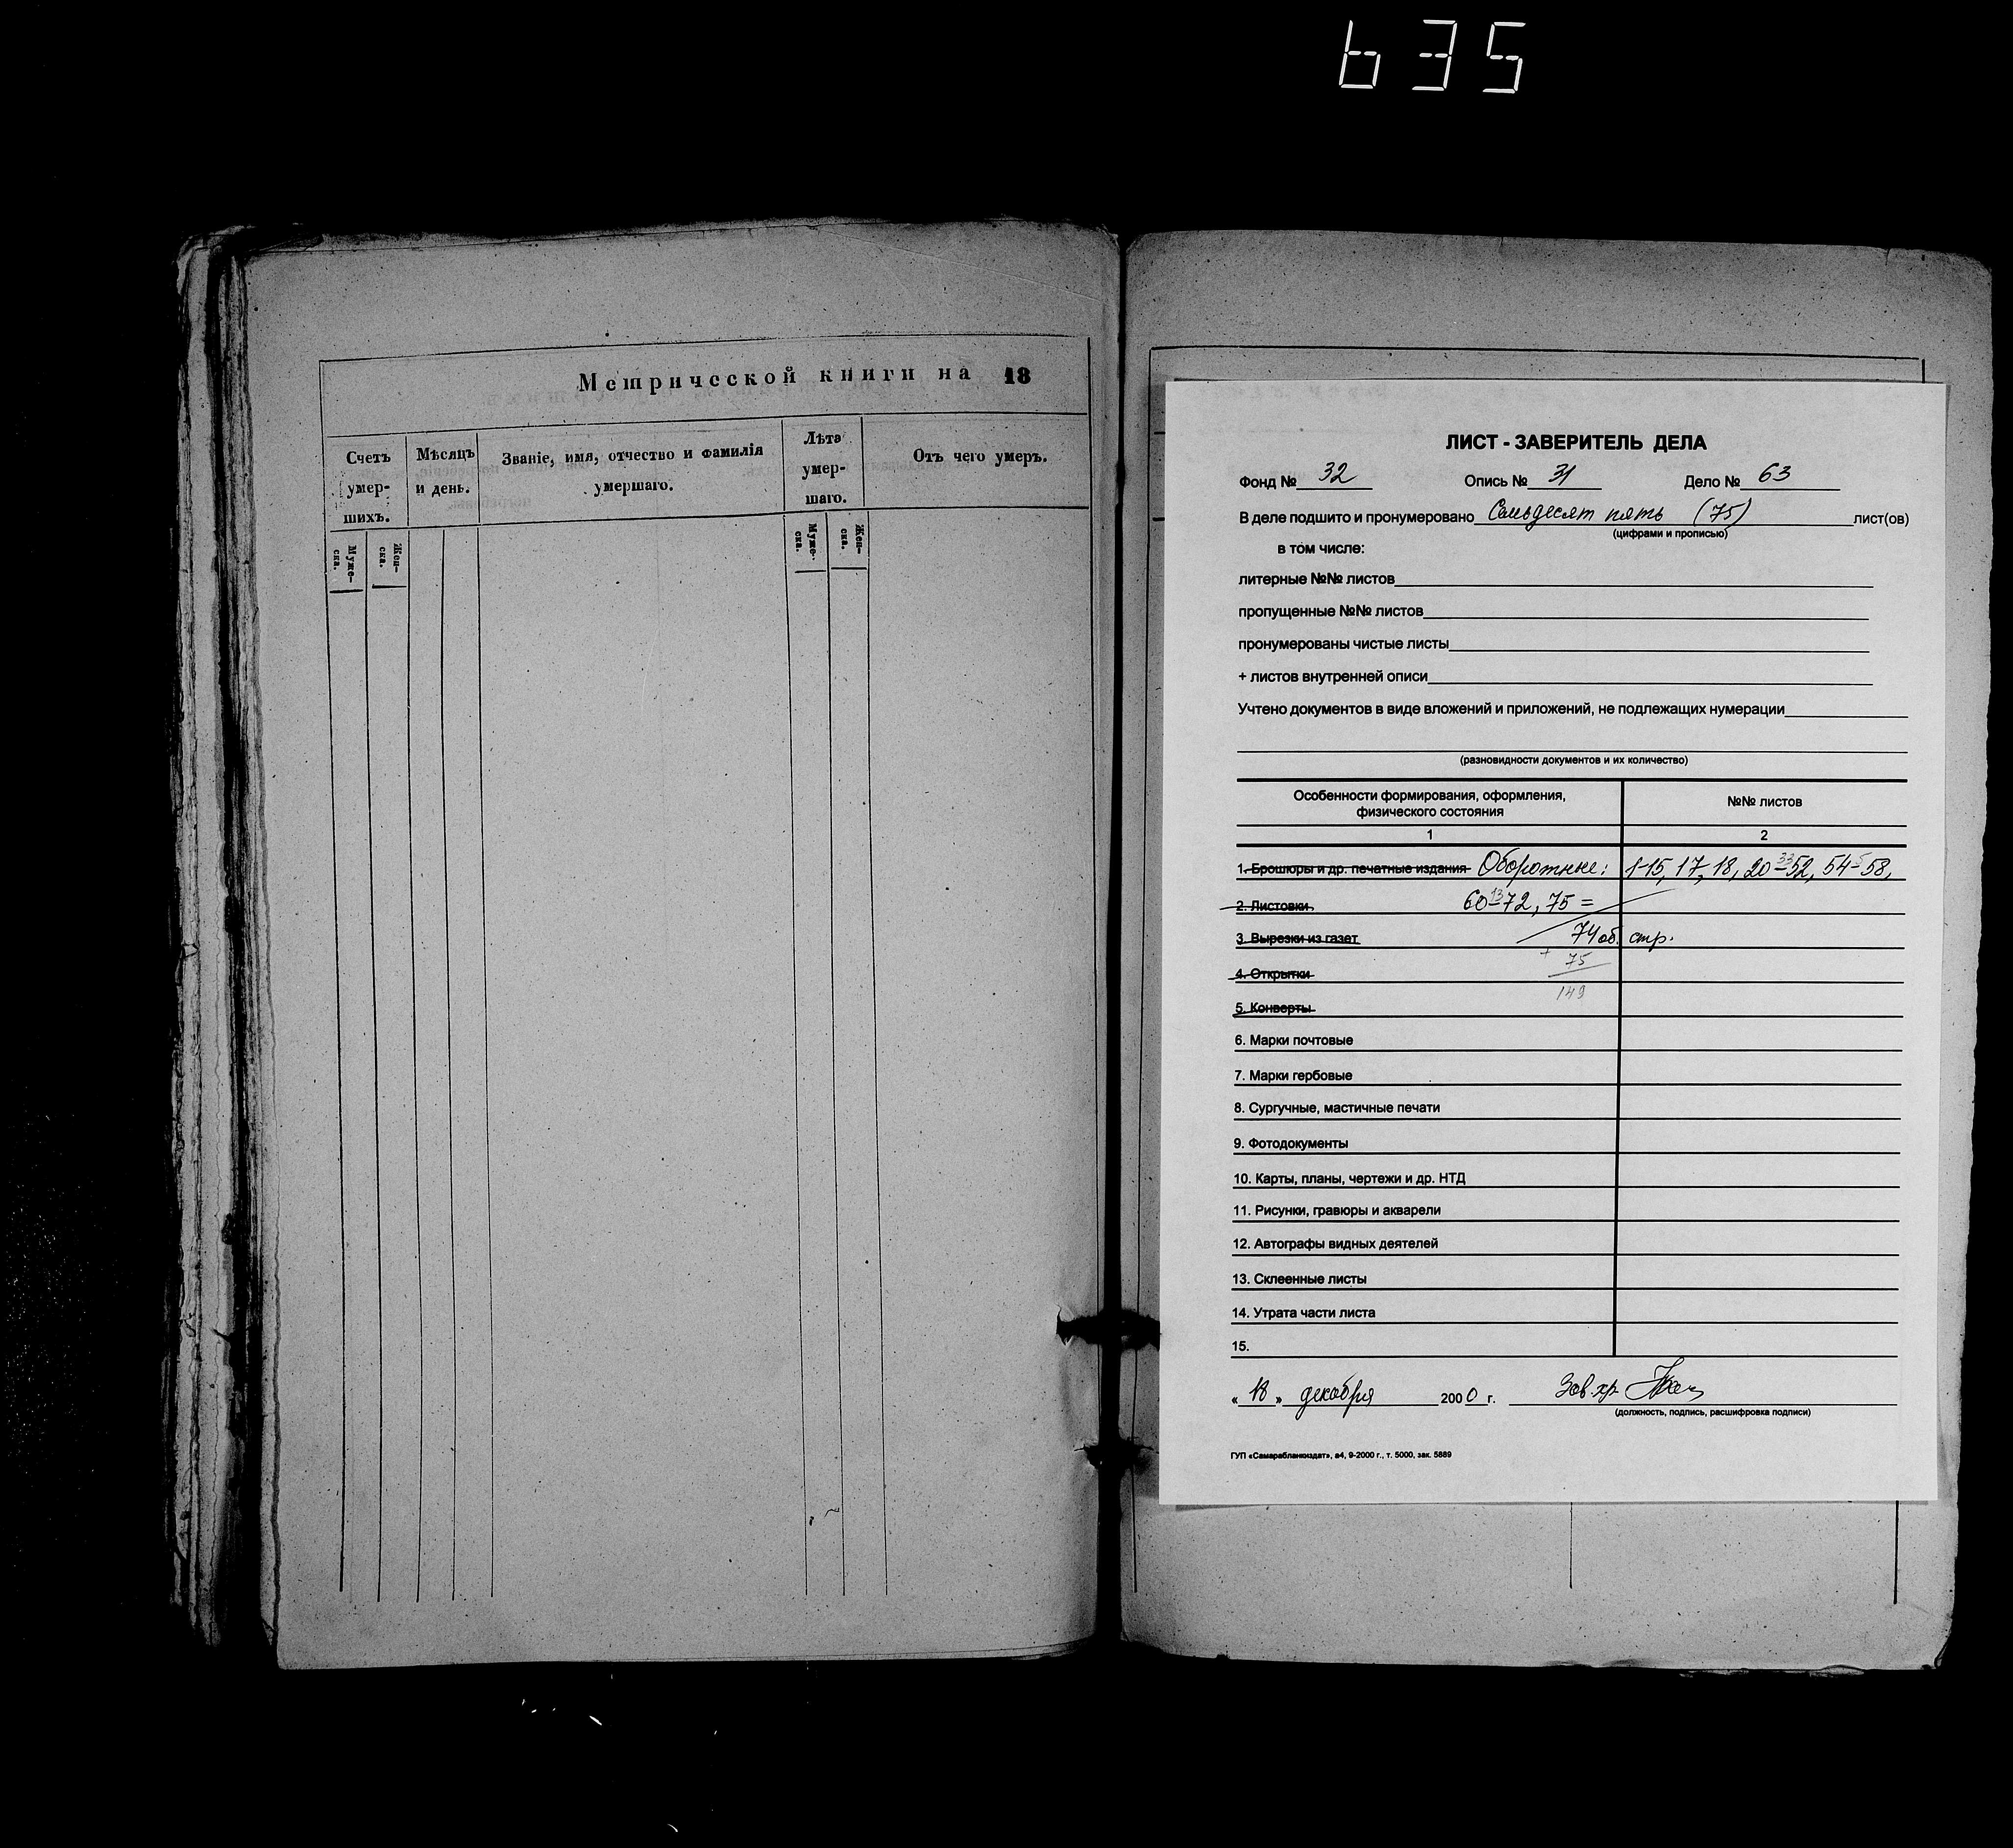 635
Метрической книги на 18
Счетъ умер-шихъ.
Мѣсяцъ и день.
Званіе, имя, отчество и фамилія умершаго.
Лѣта умер-шаго.
Отъ чего умеръ.
Муже-ска.
Жен-ска.
Муже-ска.
Жен-ска.
ЛИСТ - ЗАВЕРИТЕЛЬ ДЕЛА
Фонд № 32 Опись № 31 Дело № 63
В деле подшито и пронумеровано Семьдесят пять (75) лист(ов)
(цифрами и прописью)
в том числе:
литерные №№ листов
пропущенные №№ листов
пронумерованы чистые листы
+ листов внутренней описи
Учтено документов в виде вложений и приложений, не подлежащих нумерации
(разновидности документов и их количество)
Особенности формирования, оформления,
физического состояния
№№ листов
1 2
1. Брошюры и др. печатные издания Оборотные: 1-15, 17, 18, 20-52, 54-58,
33 5
2. Листовки 60-72, 75 =
13
3. Вырезки из газет 74 об. стр.
+ 75
4. Открытки
149
5. Конверты
6. Марки почтовые
7. Марки гербовые
8. Сургучные, мастичные печати
9. Фотодокументы
10. Карты, планы, чертежи и др. НТД
11. Рисунки, гравюры и акварели
12. Автографы видных деятелей
13. Склеенные листы
14. Утрата части листа
15.
« 18 » декабря 2000 г. Зав.хр.
(должность, подпись, расшифровка подписи)
ГУП «Самарабланкиздат», а4, 9-2000 г., т. 5000, зак. 5889